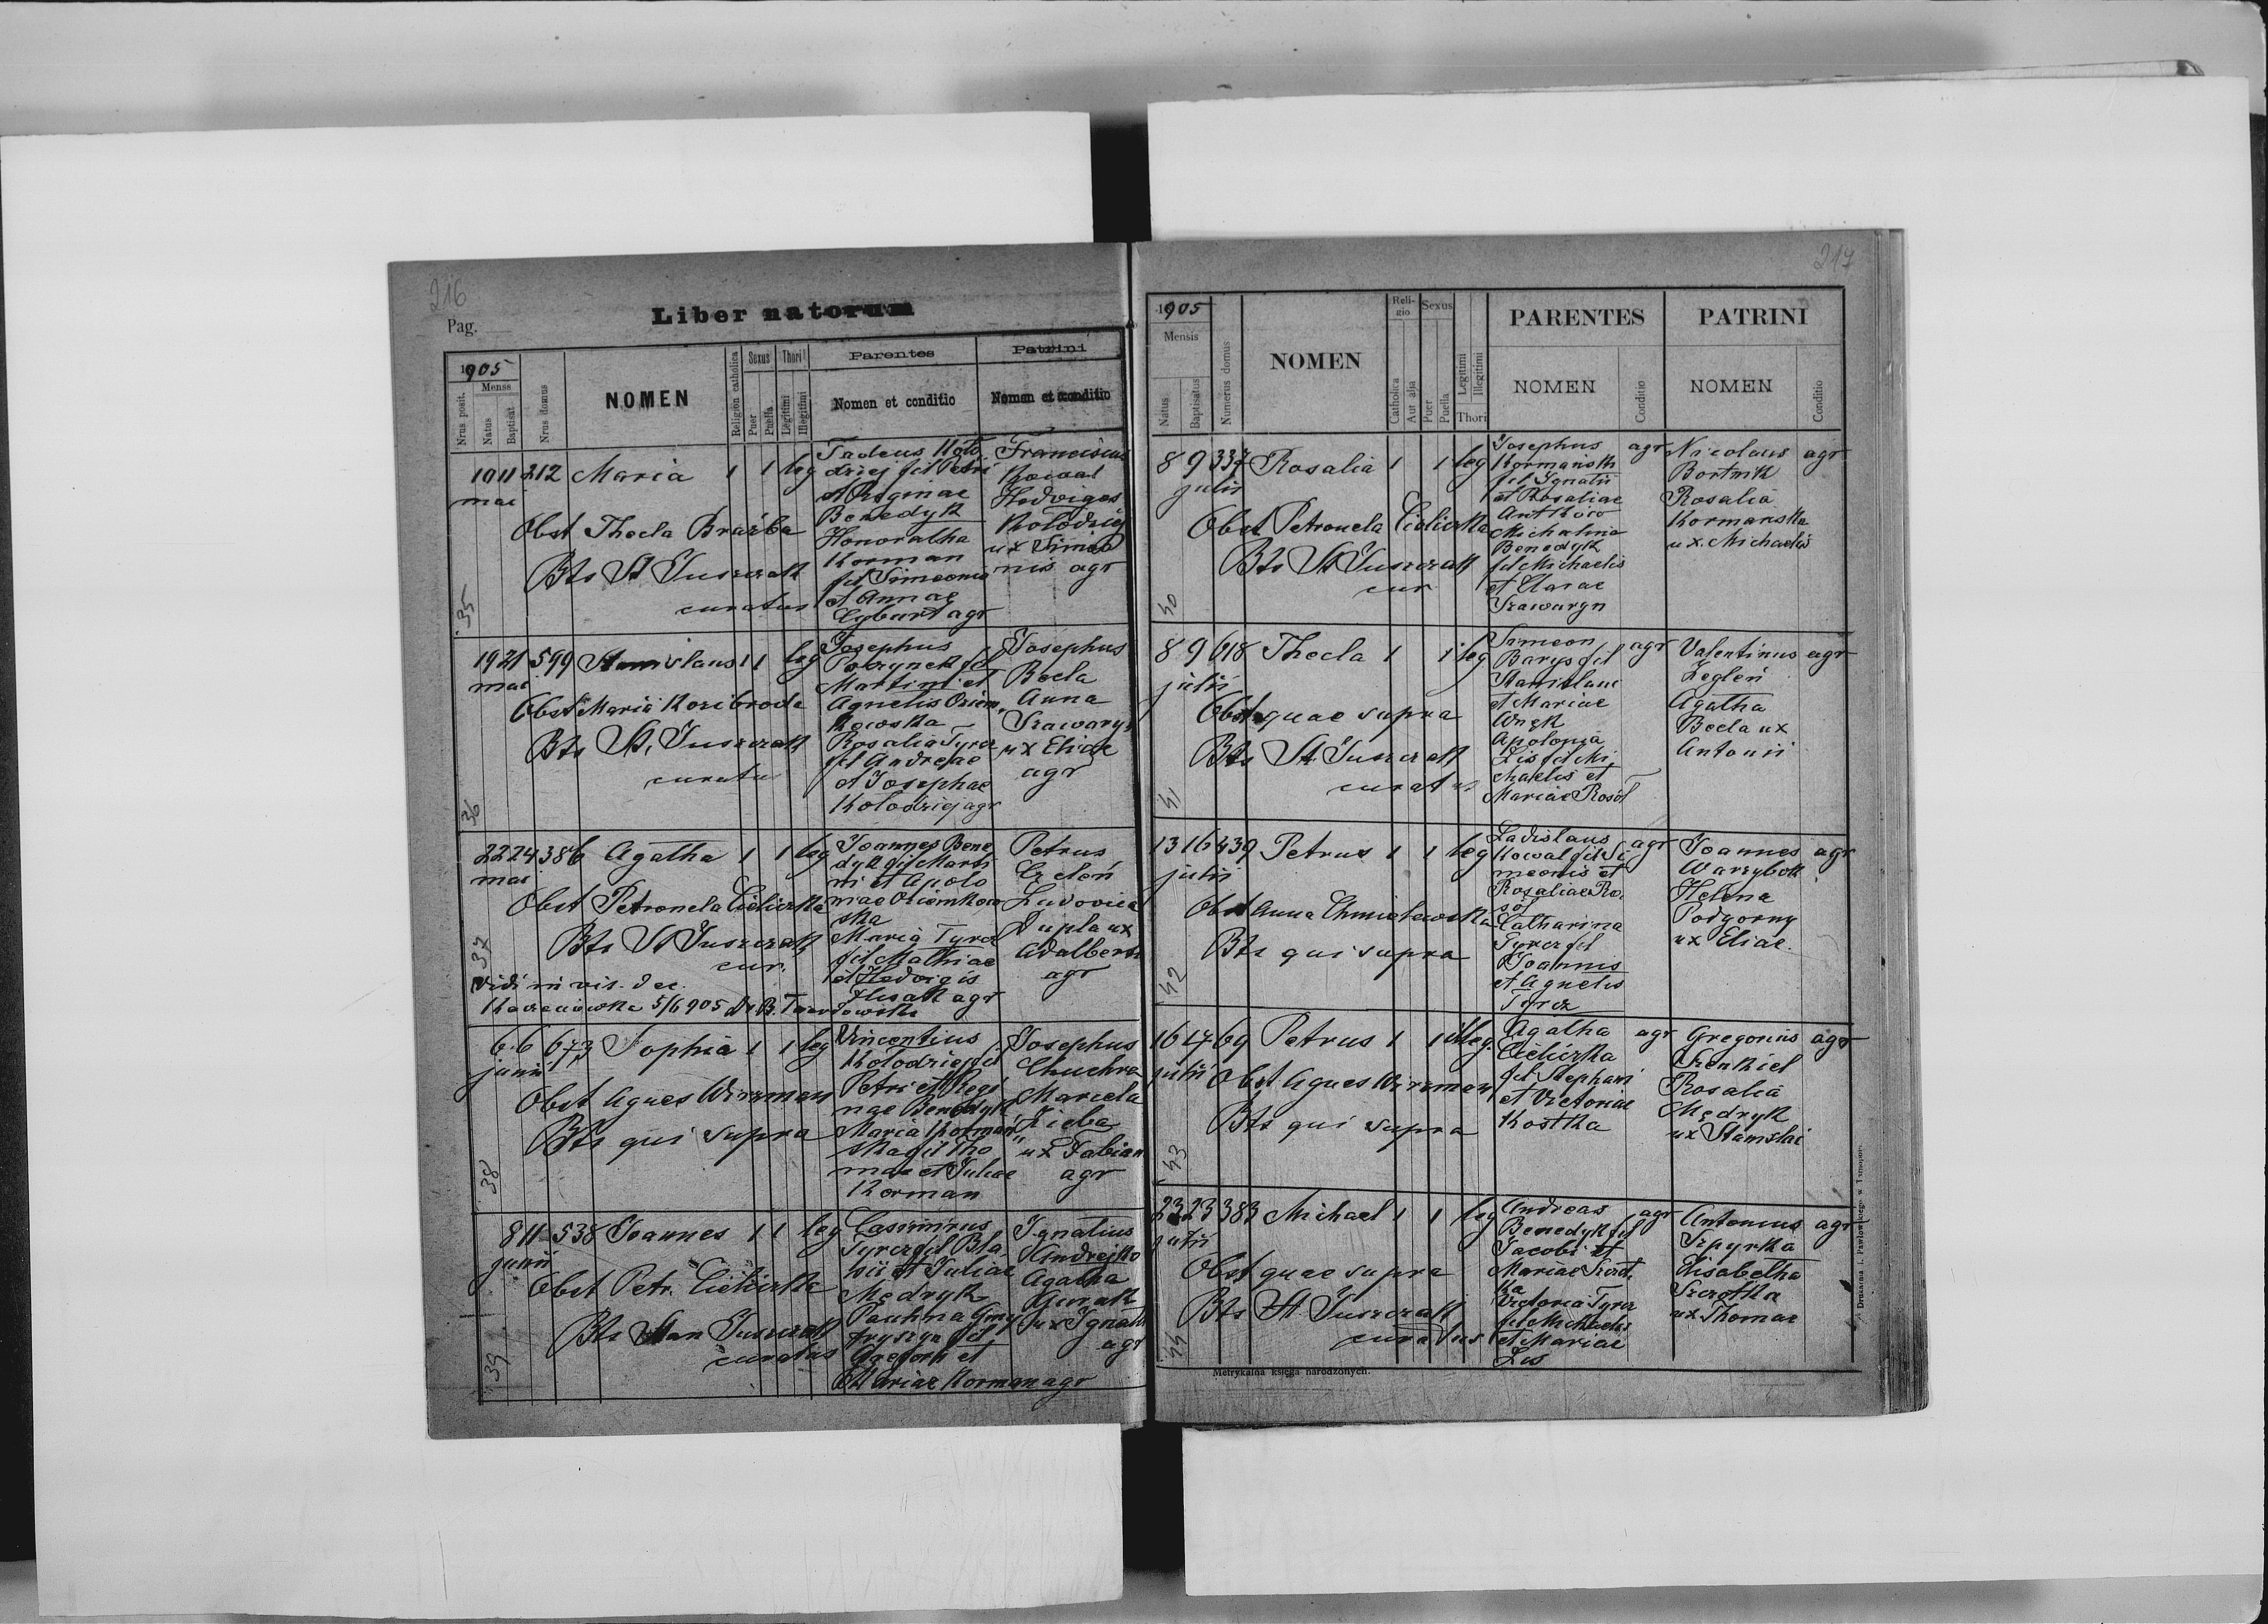 216
Pag.
Liber natorum
1905
Menss
Nrus posit.
Natus
Baptisat
Nrus domus
NOMEN
Religion catholica
Sexus
Puer
Puella
Thori
Legitimi
Illegitimi
Parentes
Nomen et conditio
Patrini
Nomen et conditio
35
10 11 212 Maria 1 1 leg
mai
Obst Thecla
Bts St Juszczak
curatus
Tadeus Koło
dziej fil Petri
et Reginae
Benedyk
Honoratha
Korman
fil Simeonis
et Annae
Cybart agr
Franciscus
Kowal
Hedviges
Kołodziej
ux Simeo
nis agr
36
19 21 599 Stanislaus 1 1 leg
mai
Obst Maria Kozibroda
Bts St. Juszczak
curatus
Josephus
fil
Martini et
Agnetis Oziem
kowska
Rosalia Tyrcz
fil Andreae
et Josephae
Kołodziej agr
Josephus
Becla
Anna
ux Eliae
agr
37
22 24 386 Agatha 1 1 leg
mai
Obst Petronela Cieliczka
Bts St Juszczak
cur.
Vidi in vis. dec.
5/6 905
Joannes Bene
dyk fil Marti
ni et Apolo
niae Oziemkow
ska
Maria Tyrcz
fil Mathiae
et Hedvigis
agr
Petrus
Ludovica
Dupla ux
Adalberti
agr
38
6 6 673 Sophia 1 1 leg
junii
Obst Agnes Wirzman
Bts qui supra
Vincentius
Kołodziej fil
Petri et Regi
nae Benedyk
Maria Korman
ska fil Tho
mae et Juliae
Korman
Josephus
Chuchra
Marcela
Zieba
ux Fabian
agr
39
8 11 538 Joannes 1 1 leg
junii
Obst Petr. Cieliczka
Bts Stan Juszczak
curatus
Casimirus
Tyrcz fil Bla
sii et Juliae
Mędryk
Paulina
fil
Gregorii et
Mariae Korman agr
Ignatius
Andrejko
Agatha
ux Ignatii
agr
217
1905
Mensis
Natus
Baptisatus
Numerus domus
NOMEN
Religio
Catholica
Aut alia
Sexus
Puer
Puella
Legitimi
Illegitimi
Thori
PARENTES
NOMEN
Conditio
PATRINI
NOMEN
Conditio
40
8 9 337 Rosalia 1 1 leg
julii
Obst Petronela Cieliczka
Bts St Juszczak
cur
Josephus agr
Kormański
fil Ignatii
et Rosaliae
Michalina
Benedyk
fil Michaelis
et Clarae
Nicolaus agr
Bortnik
Rosalia
Kormańska
ux. Michaelis
41
8 9 618 Thecla 1 1 leg
julii
Obst quae supra
Bts St Juszczak
curatus
Simeon agr
Barys fil
Stanislaui
et Mariae
Wnęk
Apolonia
Lis fil Mi
chaelis et
Mariae Rosół
Valentinus agr
Zegleń
Agatha
Becla ux
Antonii
42
13 16 439 Petrus 1 1 leg
julii
Obst Anna Chmielewska
Bts qui supra
Ladislaus agr
Kowal fil Si
meonis et
Rosaliae Ro
sół
Catharina
Tyrcz fil
Joannis
et Agnetis
Tyrcz
Joannes agr
Warzybok
Helena
Podgorny
ux Eliae.
43
16 17 69 Petrus 1 1 illeg.
julii
Obst Agnes Wirzman
Bts qui supra
Agatha agr
Cieliczka
fil Stephani
et Victoriae
Kostka
Gregorius agr
Szenkiel
Rosalia
Mędryk
ux Stanislai
44
23 23 383 Michael 1 1 leg
julii
Obst quae supra
Bts St Juszczak
curatus
Andreas agr
Benedyk fil
Jacobi et
Mariae Szrot
ka
Victoria Tyrcz
fil Michaelis
et Mariae
Lis
Antonius agr
Szpyrka
Elisabetha
ux Thomae
Metrykalna księga narodzonych.
Drukarnia J. Pawłowskiego w Tarnopolu.